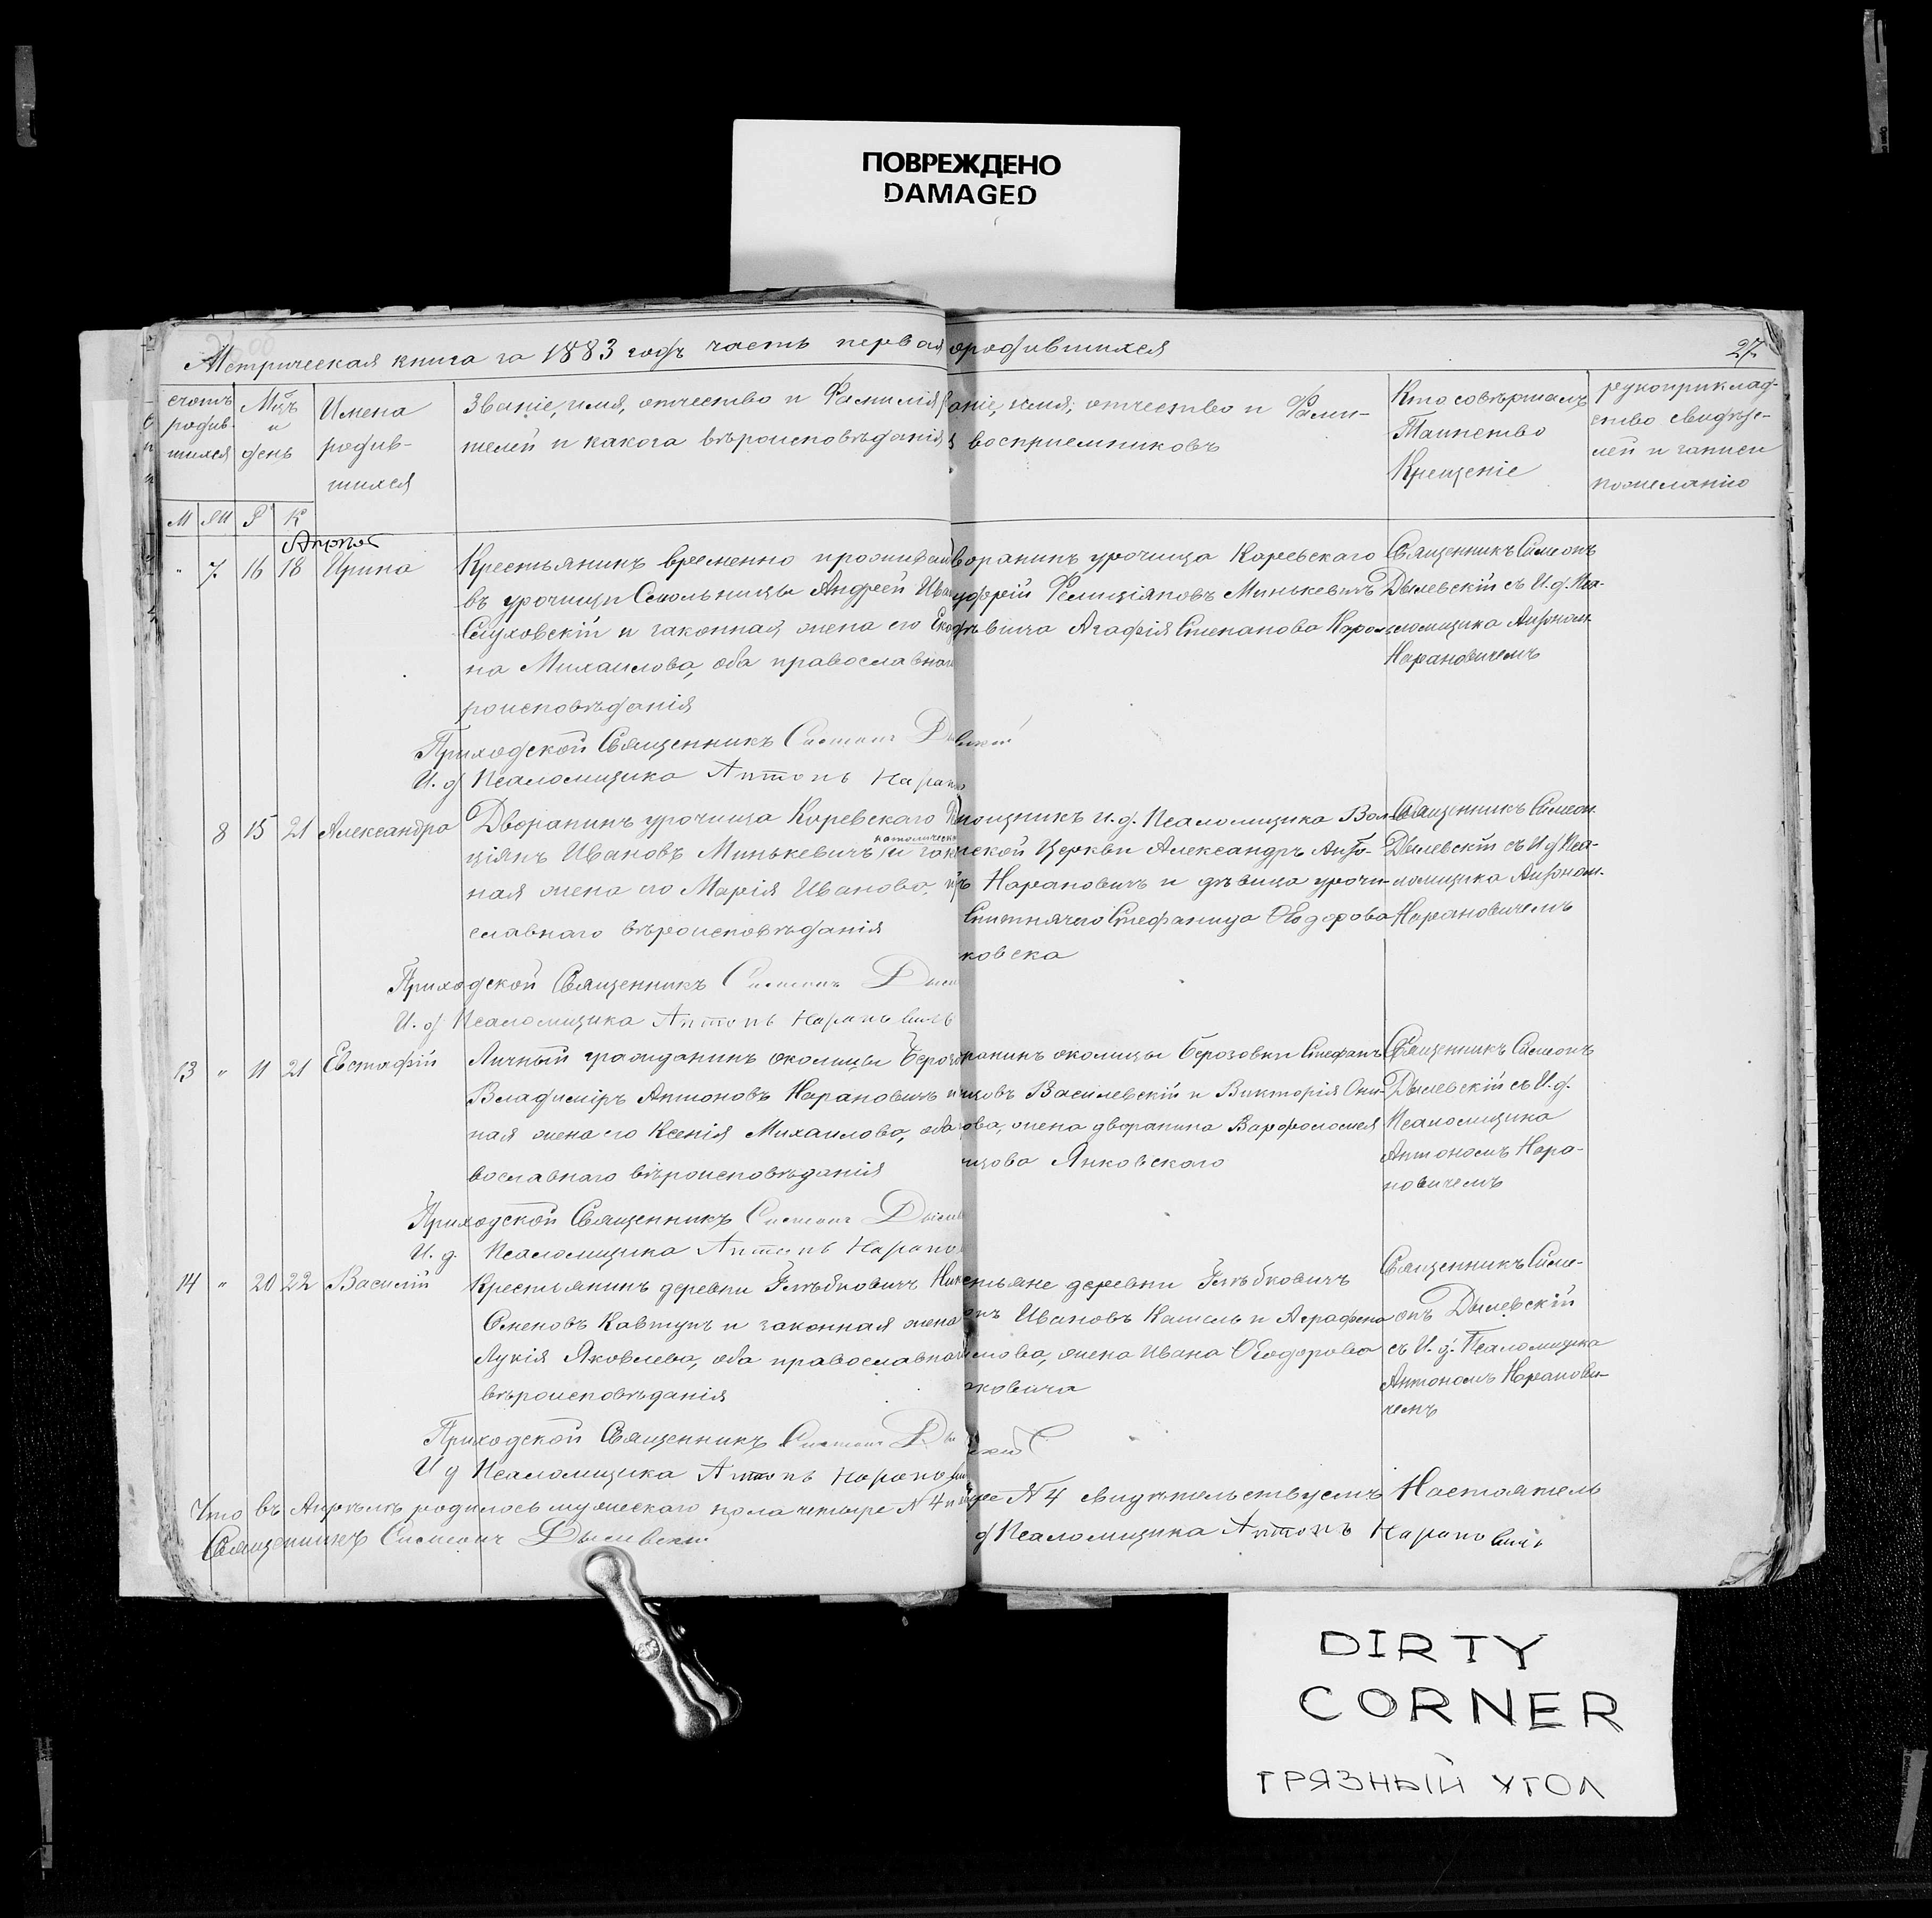 ПОВРЕЖДЕНО
DAMAGED
Метрическая книга за 1883 годъ часть первая о родившихся
27
счотъ родив- шихся
Мцъ и день
Имена родив- шихся
Званіе, имя, отчество и Фамилія
телей и какога вѣроисповѣданія
аніе, имя, отчество и Фами-
восприемниковъ
Кто совѣршалъ
Таинство
Крещеніе
рукоприклад-
ство свидѣте-
лей и записи
пожеланію
М ЖИ Р К
" 7. 16 18 Ирина
Крестьянинъ временно проживаю
въ урочищи Смольницы Андрей Ива
Слуховскій и законная жена его Ека
на Михаилова, оба православнаго
роисповѣданія
воранинъ урочища Каревскаго
уфрій Фелиціяновъ Минькевичъ
Агафія Степанова
Священникъ Симеонъ
Дылевскій съ И. д. Пса-
ломщика Антоном
Нарановичемъ
Приходской Священникъ Симеонъ Ды левскій
И. д. Псаломщика Антонъ Нарано
8 15 21 Александра
Дворанинъ урочища Каревскаго
ціянъ Ивановъ Минькевичъ и зако
католическ
ная жена его Марія Иванова,
славнаго вѣроисповѣданія
мощникъ и. д. Псаломщика Вол-
ской Церкви Александръ Анто-
Нарановичъ и дѣвица урочи-
Стефанида Ѳеодорова
ковска
Священникъ Симеон
Дылевскій съ И д Пса-
ломщика Антоном-
Нарановичемъ
Приходской Священникъ Симеонъ Дыле
И. д. Псаломщика Антонъ Нарановичъ
13 " 11 21 Евстафій
Личный гражданинъ околицы Берозов
Владиміръ Антоновъ Нарановичъ и
ная жена его Ксенія Михаилова, оба
вославнаго вѣроисповѣданія
ранинъ околицы Берозовки Стефанъ
Василевскій и Викторія
ова, жена дворанина Варфоломея
Янковского
Священникъ Симеонъ
Дылевскій съ И. д.
Псаломщика
Антономъ Нара-
новичемъ
Приходской Священникъ Симеонъ Дылев
И. д. Псаломщика Антонъ Нарано
14 " 20 22 Василій
Крестьянинъ деревни Глѣбковичъ Ник
Семеновъ Кавтунъ и законная жена
Лукія Яковлева, оба православнаго
вѣроисповѣданія
стьяне деревни Глѣбковичъ
Ивановъ Кисель и Аграфена
лова, жена Ивана Ѳеодорова
ковича
Священникъ Симе-
онъ Дылевскій
съ И. д. Псаломщика
Антономъ Наранови-
чемъ
Приходской Священникъ Симеонъ Ды вскій
И д Псаломщика Антонъ Нарановичъ
Что въ Апрѣлѣ родилось мужескаго пола четыре N 4 и ыре N 4 свидѣтельствуемъ Настоятель
Священникъ Симеонъ Дылевскій д Псаломщика Антонъ Нарановичъ
DIRTY
CORNER
ГРЯЗНЫЙ УГОЛ